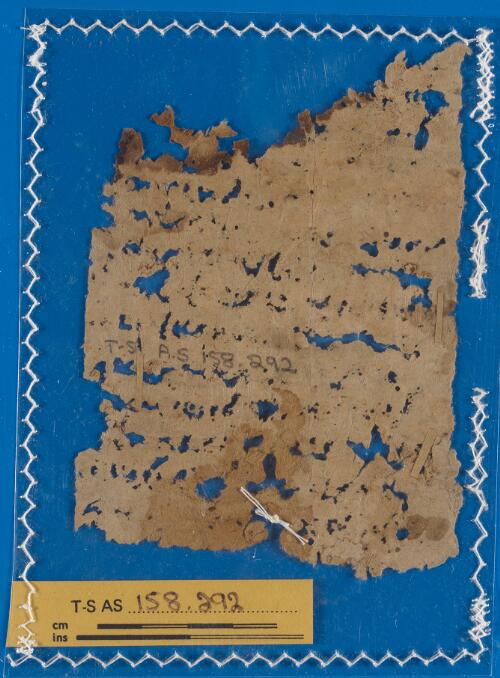 T-S AS 158.292
T-S AS 158.292
cm
ins